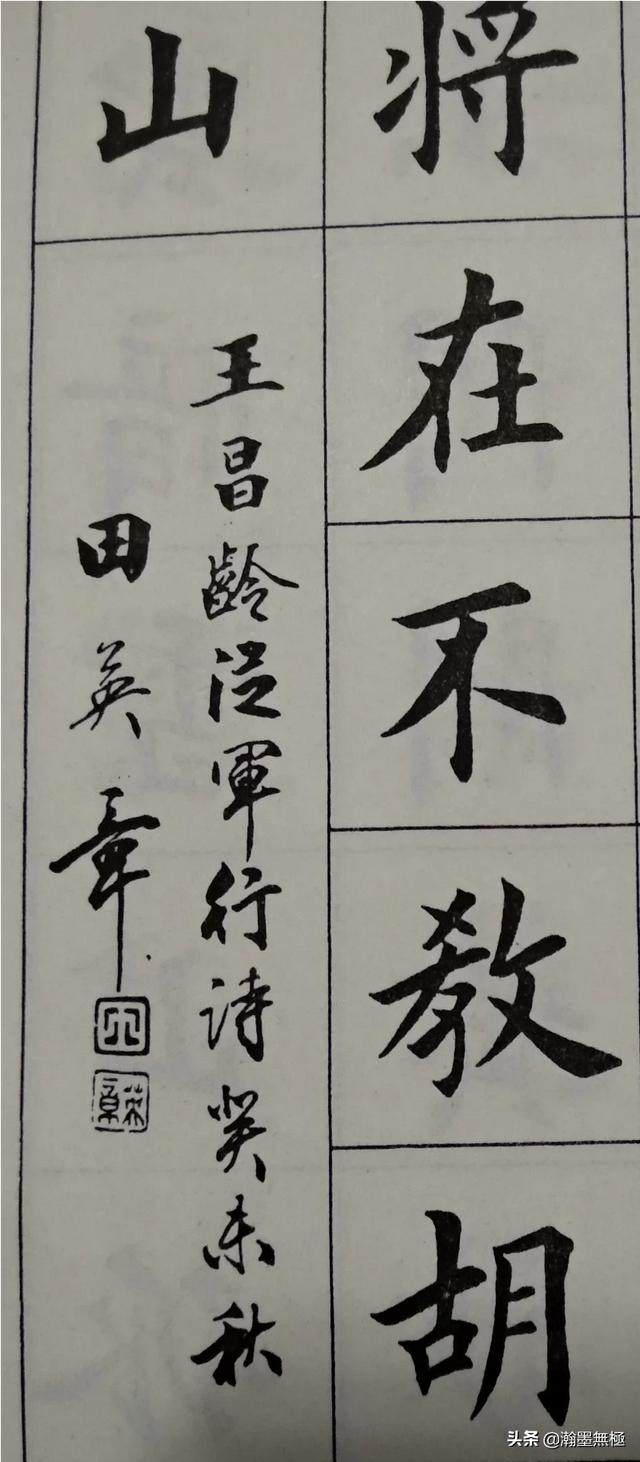 将在不教胡
山
王昌齡從軍行诗癸未秋
田英章
英章
头条 @瀚墨無極